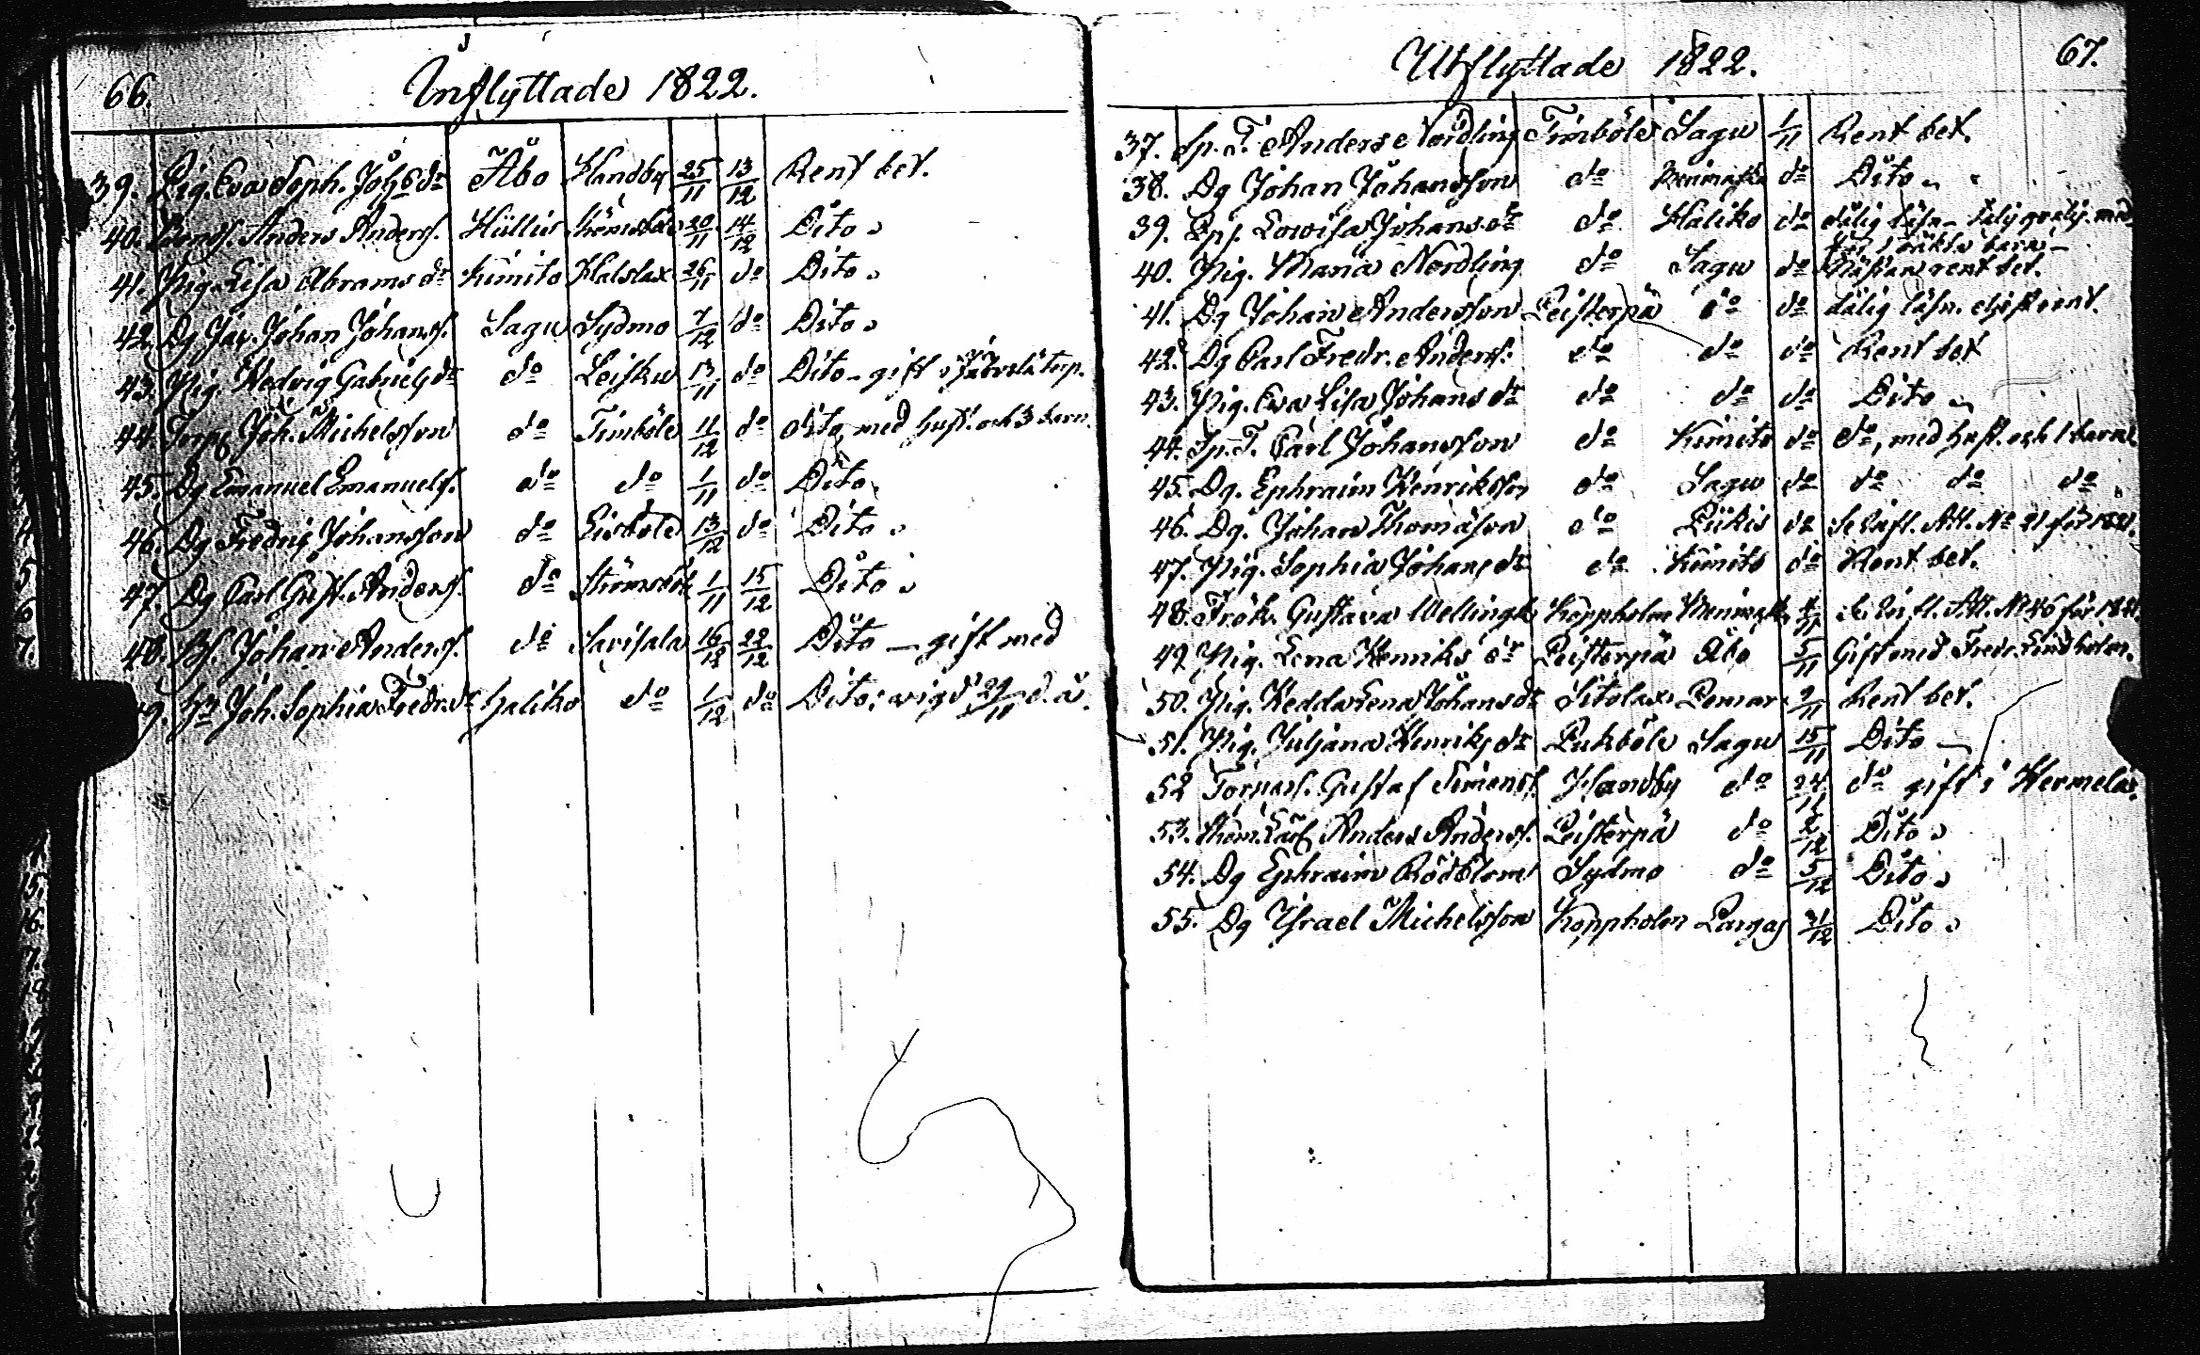 66.
Inflyttade 1822.
39. Pig. Eva Soph. Johsdr Åbo Klandby 25/11 13/12 Rent bet.
40. Anders Anders. 20/11 14/12 Dito
41. Pig. Lisa Abramsdr Kimito Kalslax 26/11 do Dito
42. Dg Johan Johanss. Sagu Sydmo 7/12 do Dito
43. Pig. Hedvig Gabrielsdr do Leisku 13/11 do Dito - gift i
44. Torp. Joh. Michelsson do Timböle 11/12 do dito, med hust. och 3 barn.
45. Dg Emanuel Emanuels. do do 1/11 do Dito
46. Dg Fredric Johansson do 13/12 do Dito
47. Dg Carl Gust. Anders. do 1/11 15/12 Dito
48. Johan Anders. do Sarisala 16/12 22/12 Dito — gift med
49. Joh. Sophia Fredr.dr Haliko do 1/12 do Dito; wigd 29/11 d. å.
67.
Utflyttade 1822.
37. Sp. T. Anders Nordling Timböle Sagu 1/11 Rent bet.
38. Dg Johan Johansson do do Dito
39. Lowisa Johansdr do Haliko do dålig läsn.
40. Pig. Maria Nordling do Sagu do Nästan rent bet.
41. Dg Johan Andersson Leisterpä do do dålig läsn. eljest rent.
42. Dg Carl Fredr. Anders. do do do Rent bet
43. Pig. Eva Lisa Johansdr do do do Dito
44. Sp. T. Carl Johansson do Kimito do do, med hust. och 1 barn
45. Dg. Ephraim Henriksson do Sagu do do do do
46. Dg. Johan Thomasson do Piikis do Se Infl. Att. No 21 för 1821.
47. Pig. Sophia Johansdr do Kimito do Rent bet.
48. Frök. Gustava Wellingk Koppholm Se Infl. Att. No 46 för
49. Pig. Lena Henriksdr Leisterpä Åbo 5/11 Gift med Fredr. Lindholm.
50. Pig. Hedda Lena Johansdr Sitolax Pemar 9/11 Rent bet.
51. Pig. Juliana Henriksdr Pukböle Sagu 15/11 Dito
52 Gustaf Simons. Klandby do 24/11 do gift i Hermelax.
53. Anders Anders. Leisterpä do Dito
54. Dg Ephraim Rödblom Sydmo do 5/12 Dito
55. Dg Israel Michelsson Koppholm Pargas 31/12 Dito